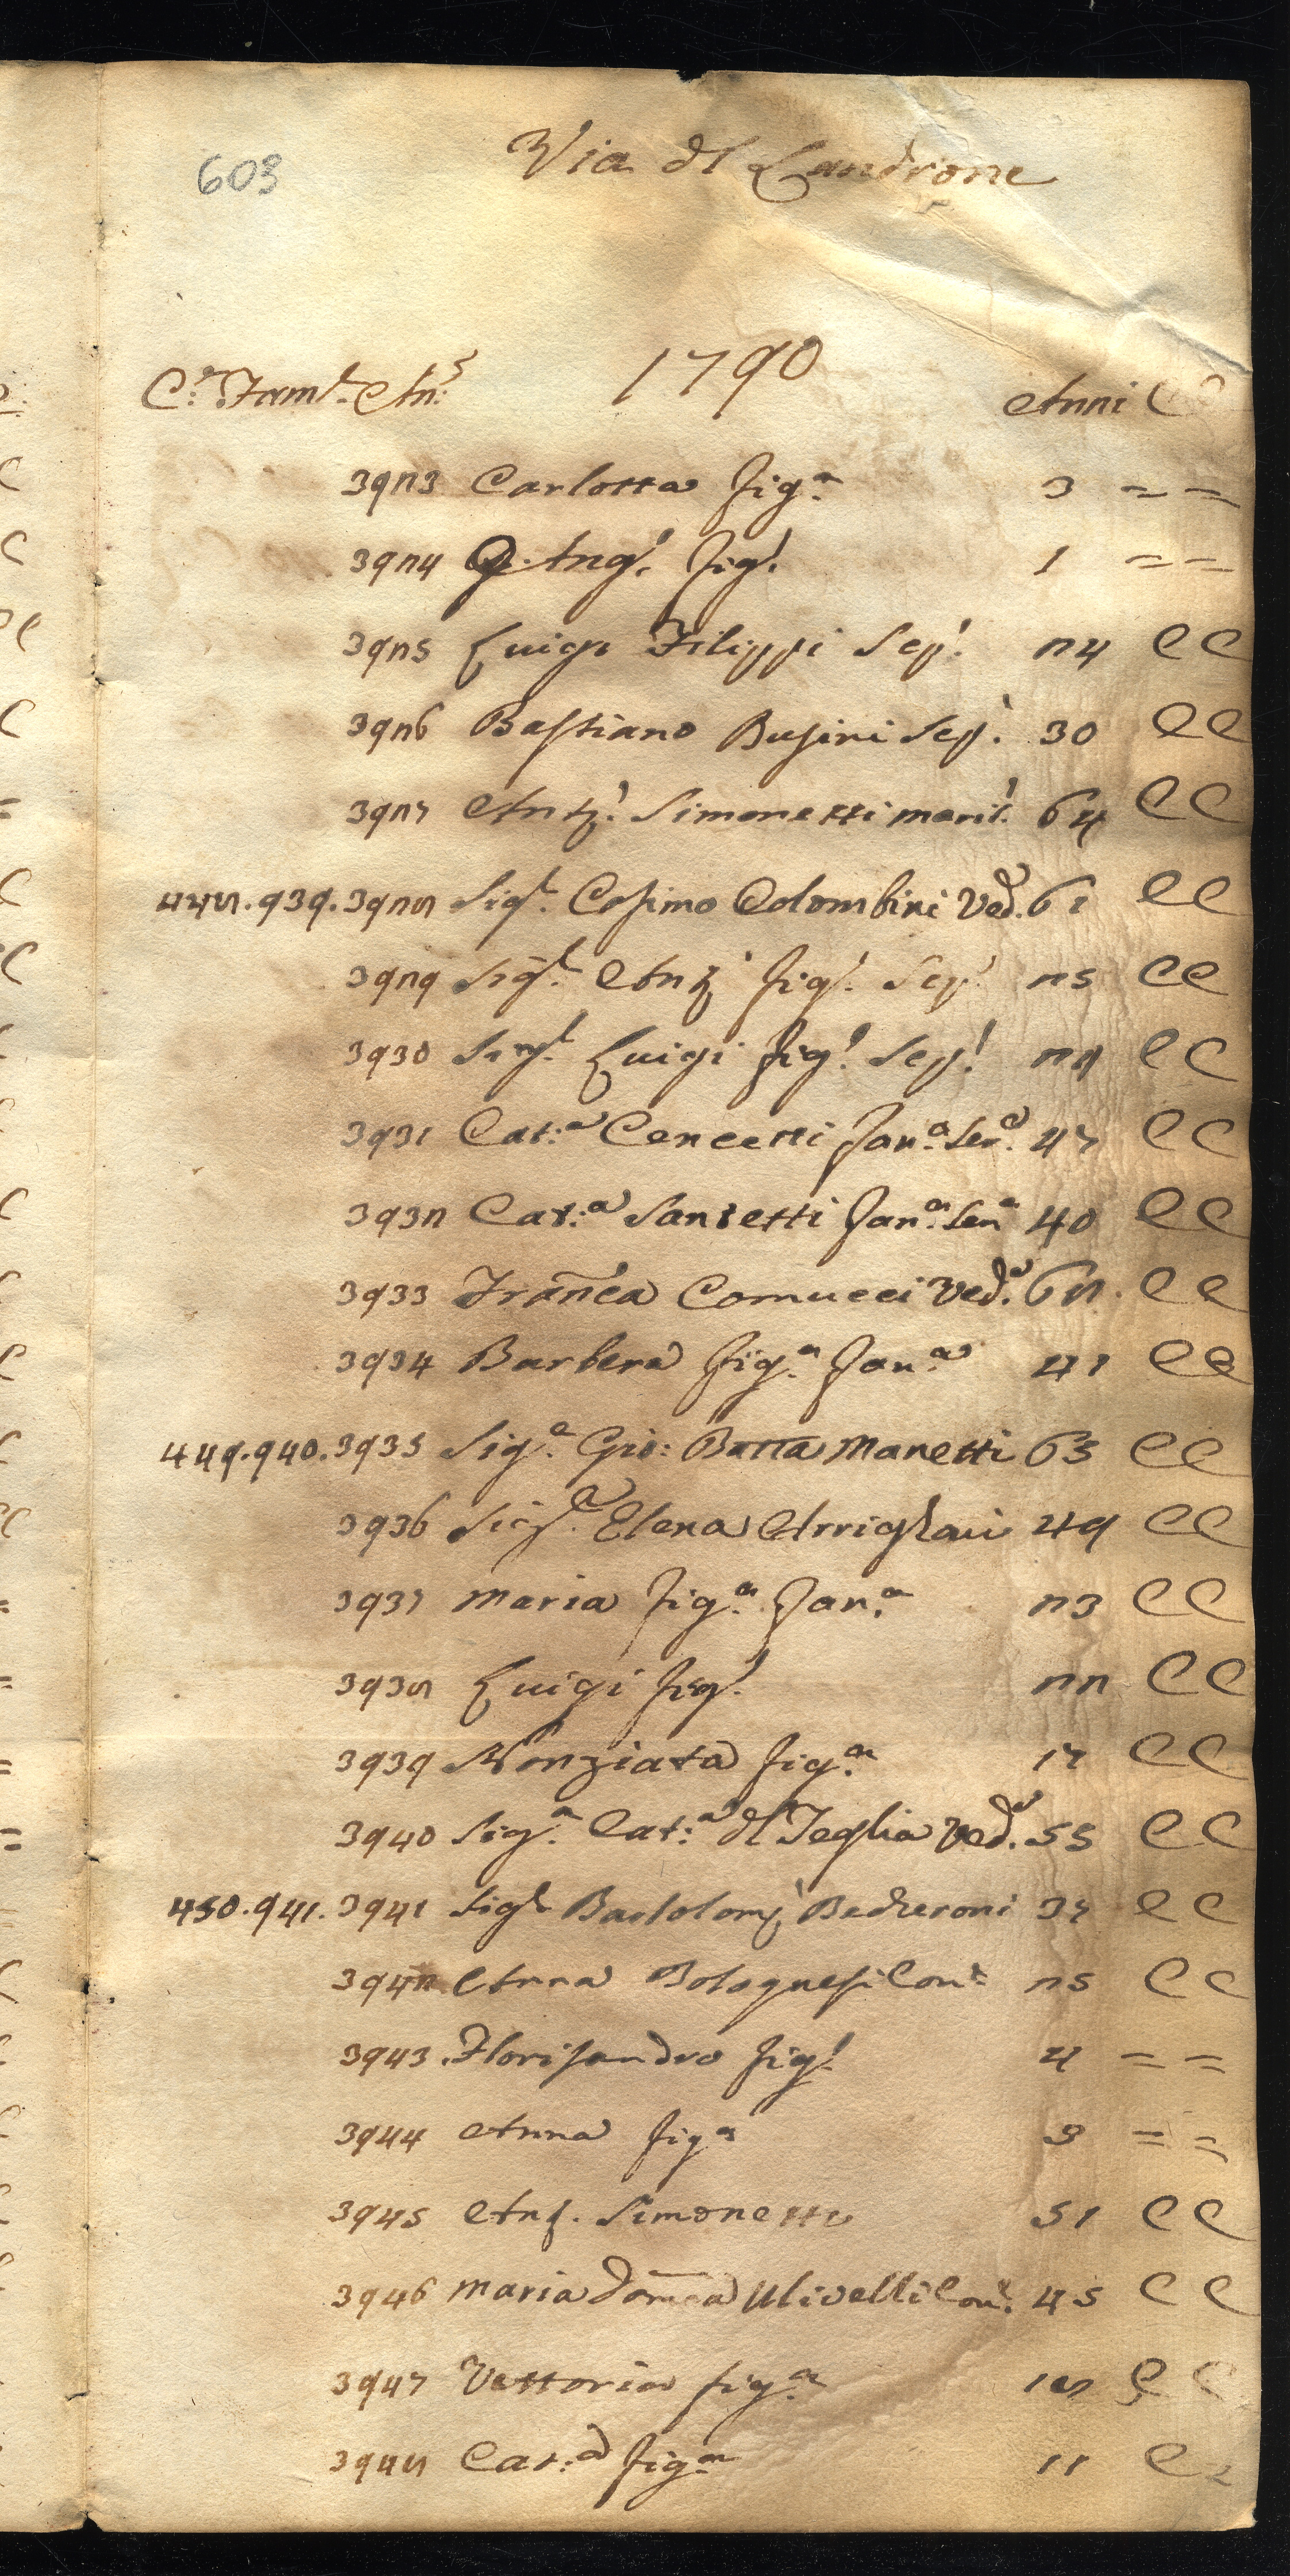 603
Via dl Landrone
1790
C.e Fam.e An.e Anni C C
3923 Carlotta fig.a 3 = =
3924 G. Ang.o fig.o 1 = =
3925 Luigi Filippi Sep.o 24 C C
3926 Bastiano Busini Sep.o 30 C C
3927 Ant.o Simonetti marit.o 64 C C
448. 939. 3928 Sig.r Cosimo Colombini Ved.o 61 C C
3929 Sig.r Ant.o fig.o Sep.o 25 C C
3930 Sig.r Luigi fig.o Sep.o 21 C C
3931 Cat.a Concetti fan.a Ser.a 47 C C
3932 Cat.a Santetti fan.a Ser.a 40 C C
3933 Franca Comucci Ved.a 68 C C
3934 Barbera fig.a fan.a 41 C C
449. 940. 3935 Sig.e Gio: Batta Manetti 63 C C
3936 Sig.a Elena Arrighi 49 C C
3937 Maria fig.a fan.a 23 C C
3938 Luigi fig.o 22 C C
3939 Nonziata fig.a 17 C C
3940 Sig.a Cat.a dl Teglia Ved.a 55 C C
450. 941. 3941 Sig.r Bartolom.o Becheroni 37 C C
3942 Anna Bolognesi Con.e 25 C C
3943 Florisandro fig.o 4 = =
3944 Anna fig.a 3 = =
3945 Ant.o Simonetti 51 C C
3946 Maria Domca Ulivelli Con.e 45 C C
3947 Vettoria fig.a 18 C C
3948 Cat.a fig.a 11 C